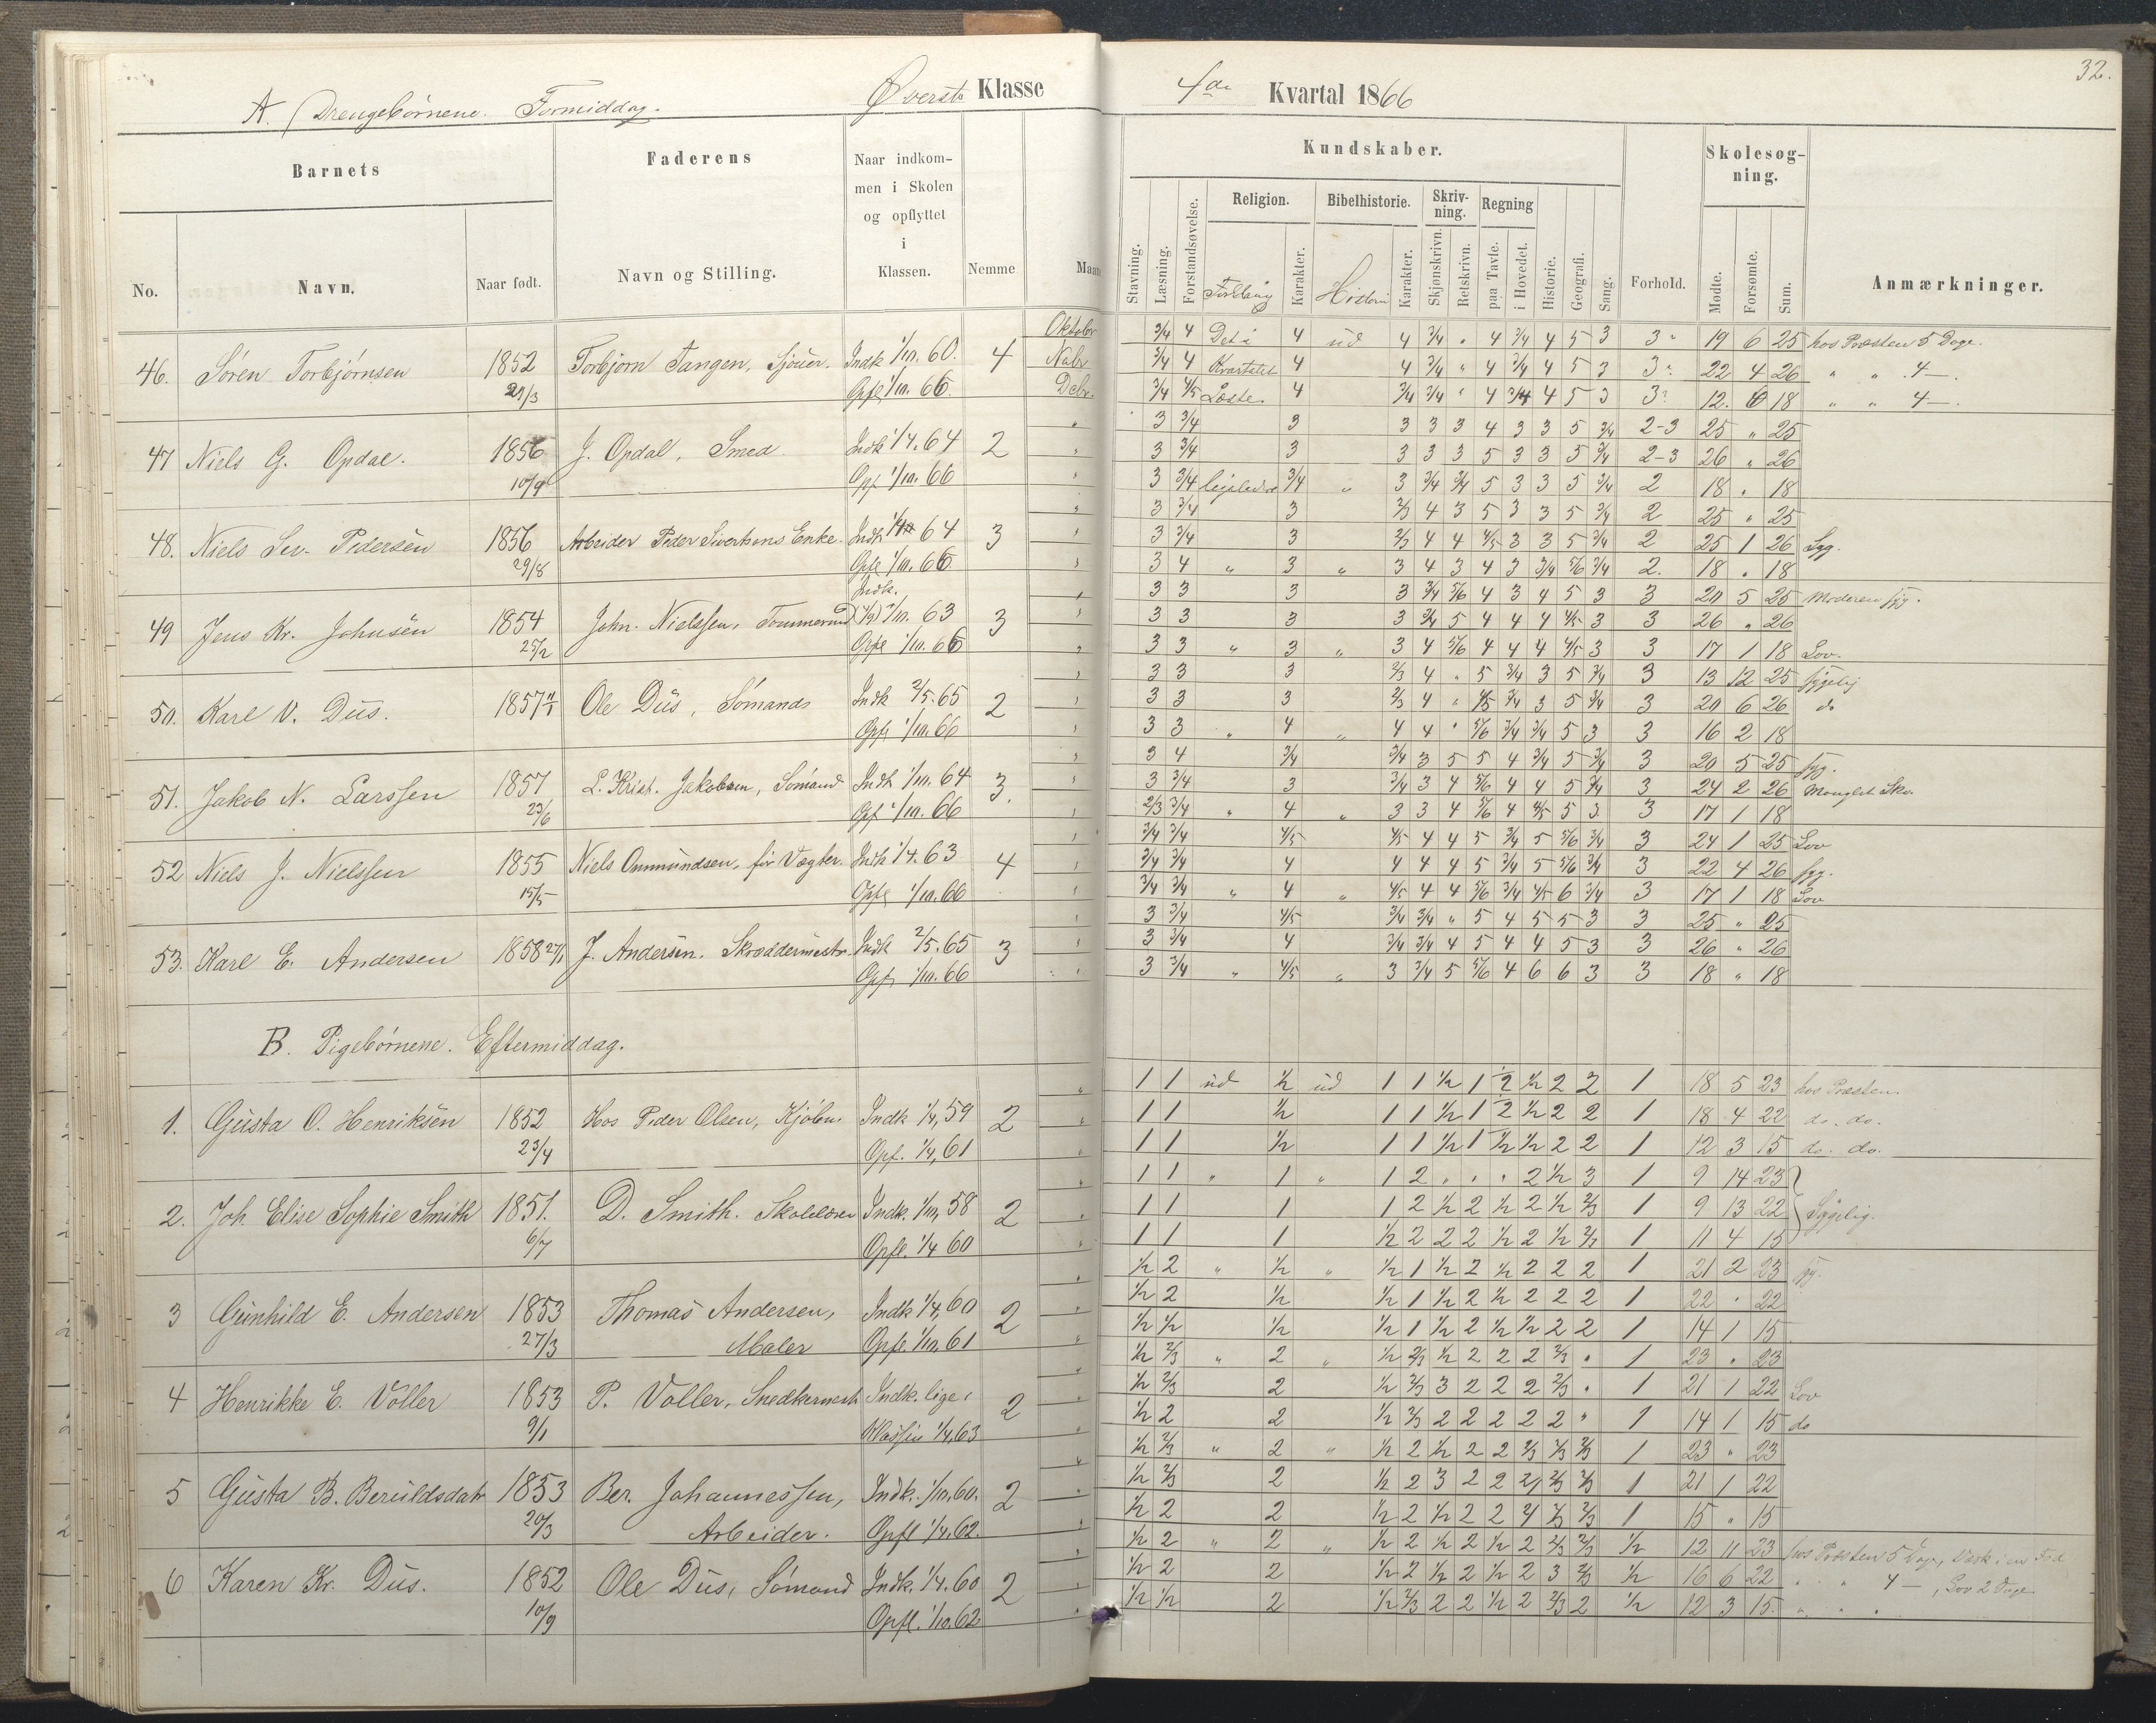 A. Drengebørnene. Formiddag.
Øverste Klasse
4de Kvartal 1866
32.
Barnets
Faderens
Naar indkom-
men i Skolen
og opflyttet
i
Klassen.
Nemme
No.
Navn.
Naar født.
Navn og Stilling.
Kundskaber.
Religion.
Bibelhistorie.
Skriv-
ning.
Regning
Stavning.
Læsning.
Forstandsøvelse.
Karakter.
Karakter.
Skjønskrivn.
Retskrivn.
paa Tavle.
i Hovedet.
Historie.
Geografi.
Sang.
Forhold.
Skolesøg-
ning.
Mødte.
Forsømte.
Sum.
Anmærkninger.
46. Søren Torbjørnsen 1852 Torbjørn Tangen, Sjouer. Indk 1/10. 60. 4
Opfl 1/10. 66.
Oktobr 3/4 4 Det i 4 ud 4 3/4 " 4 3/4 4 5 3 3 19 6 25 hos Præsten 5 Dage.
Nobr 3/4 4 Kvartalet 4 4 3/4 " 4 3/4 4 5 3 3 22 4 26 " " 4 —.
Debr. 3/4 4/5 Læste. 4 3/4 3/4 " 4 3/4 4 5 3 3 12. 6 18 " " 4 —.
47 Niels G. Opdal. 1856 J. Opdal, Smed. Indk 1/4. 64 2
10/9 Opf 1/10. 66
3 3/4 3 3 3 3 4 3 3 5 3/4 2-3 25 " 25
3 3/4 3 3 3 3 5 3 3 5 3/4 2-3 26 " 26
3 3/4 ligeledes 3/4 " 3 3/4 3/4 5 3 3 5 3/4 2 18 " 18
48. Niels Sev. Pedersen 1856 Arbeider Peder Sivertsens Enke. Indk 64 3
29/8 Opfl 1/10. 66
3 3/4 3 2/3 4 3 5 3 3 5 3/4 2 25 " 25
3 3/4 3 2/3 4 4 4/5 3 3 5 3/4 2 25 1 26 Syg.
3 4 " 3 " 3 4 3 4 3 3/4 5/6 3/4 2. 18 . 18
Indk.
49 Jens Kr. Johnsen 1854 John. Nielssen, Tømmermd 1/10. 63 3
25/2 Opfl 1/10. 66
3 3 3 3 3/4 5/6 4 3 4 5 3 3 20 5 25 Moderen syg.
3 3 3 3 3/4 5 4 4 4 4/5 3 3 26 " 26
3 3 " 3 " 3 4 5/6 4 4 4 4/5 3 3 17 1 18 Lov.
50. Karl V. Dūs. 1857 Ole Dūs, Sømand Indk 2/5. 65 2
Opf 1/10. 66
3 3 3 2/3 4 " 5 3/4 3 5 3/4 3 13 12 25 sygelig
3 3 3 2/3 4 " 4/5 3/4 3 5 3/4 3 20 6 26 do
3 3 " 4 " 4 4 " 5/6 3/4 3/4 5 3 3 16 2 18
51. Jakob N. Larssen 1857 L. Krist. Jakobsen, Sømand Indk 1/10. 64 3.
23/6 Opf 1/10. 66
3 4 3/4 3/4 3 5 5 4 3/4 5 3/4 3 20 5 25 syg.
3 3/4 3 3/4 3 4 5/6 4 4 5 3/4 3 24 2 26 Manglet Sko.
2/3 3/4 " 4 " 3 3 4 5/6 4 4/5 5 3 3 17 1 18
52 Niels J. Nielssen 1855 Niels Onmūndsen, før Vægter. Indk 1/4. 63 4
15/5 Opfl 1/10. 66
3/4 3/4 4/5 4/5 4 4 5 3/4 5 5/6 3/4 3 24 1 25 Lov
3/4 3/4 4 4 4 4 5 3/4 5 5/6 3/4 3 22 4 26 syg.
3/4 3/4 " 4 " 4/5 4 4 5/6 3/4 4/5 6 3/4 3 17 1 18 Lov
53. Karl E. Andersen 1858 27/1 J. Andersen. Skræddermestr. Indk 2/5. 65 3
Opf 1/10. 66
3 3/4 4/5 3/4 3/4 " 5 4 5 5 3 3 25 " 25
3 3/4 4 3/4 3/4 4 5 4 4 5 3 3 26 " 26
3 3/4 " 4/5 " 3 3/4 5 5/6 4 6 6 3 3 18 " 18
B. Pigebørnene. Eftermiddag.
1. Gūsta O. Henriksen 1852 Hos Peder Olsen, Kjøbm. Indk 1/4, 59 2
23/4 Opf. 1/4, 61
1 1 ud 1/2 ud 1 1 1/2 1 2 1/2 2 2 1 18 5 23 hos Præsten.
1 1 1/2 1 1 1/2 1 2 1/2 2 2 1 18 4 22 do. do.
1 1 1/2 1 1 1/2 1 1/2 1/2 2 2 1 12 3 15 do. do.
2. Joh. Elise Sophie Smith 1851. D. Smith. Skolelærer Indk. 1/10, 58 2
6/7 Opfl. 1/4 60
1 1 " 1 " 1 2 " " " 2 1/2 3 1 9 14 23
1 1 1 1 2 1/2 2 1/2 2 1/2 2/3 1 9 13 22 Sygelig.
1 1 1 1/2 2 2 2 1/2 2 1/2 2/3 1 11 4 15
3 Gūnhild E. Andersen 1853 Thomas Andersen, Indk 1/4, 60 2
27/3 Maler Opfl. 1/10, 61
1/2 2 " 1/2 " 1/2 1 1/2 2 1/2 2 2 2 1 21 2 23 syg.
1/2 2 1/2 1/2 1 1/2 2 1/2 2 2 2 1 22 " 22
1/2 1/2 1/2 1/2 1 1/2 2 1/2 1/2 2 2 1 14 1 15
4 Henrikke E. Voller 1853 P. Voller, Snedkermest. Indk. lige i 2
9/1 Klassen 1/4, 63
1/2 2/3 " 2 " 1/2 2/3 1/2 2 2 2 2/3 " 1 23 " 23
1/2 2/3 2 1/2 2/3 3 2 2 2 2/3 " 1 21 1 22 Lov
1/2 2 2 1/2 2/3 2 2 2 2 2 " 1 14 1 15 do
5 Gūsta B. Berūldsdatr 1853 Ber. Johannessen, Indk. 1/10, 60. 2
20/3 Arbeider. Opfl 1/4, 62.
1/2 2/3 " 2 " 1/2 2 1/2 2 2 2/3 2/3 2/3 1 23 " 23
1/2 2/3 2 1/2 2 3 2 2 2/3 2/3 1 21 1 22
1/2 2 2 1/2 2 1/2 2 2 2/3 2/3 1 15 " 15
6 Karen Kr. Dūs. 1852 Ole Dūs, Sømand Indk. 1/4. 60 2
10/9 Opfl. 1/10. 62
1/2 2 " 2 " 1/2 2 1/2 2 1/2 2 2/3 2/3 1/2 12 11 23 hos Præsten 5 Dage,
1/2 2 2 1/2 2 1/2 2 1/2 2 3 2/3 1/2 16 6 22 " " 4 —, Lov 2 Dage
1/2 1/2 2 1/2 2/3 2 2 1/2 2 2/3 2 1/2 12 3 15. " " "